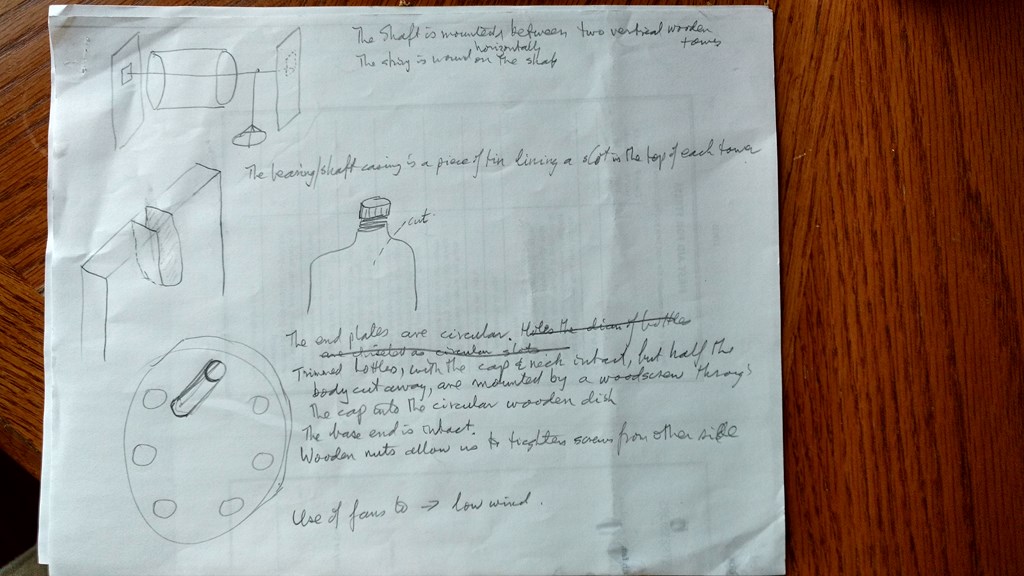 The Shaft is mounteds between two vertical wooden
towers
horizontally
The string is wound on the shaft
The bearing/shaft casing is a piece of tin lining a slot in the top of each tower
cut
The end plates are circular. Holes the diam of bottles
are drilled as circular slots
Trimmed bottles, with the cap & neck intact, but half the
body cut away, are mounted by a woodscrew through
the cap onto the circular wooden disk
The base end is intact.
Wooden nuts allow us to tighten screws from other side
Use of fans to → low wind.